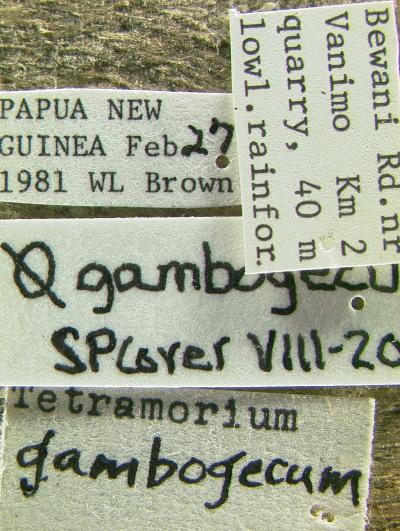 PAPUA NEW
GUINEA Feb 27
1981 WL Brown
Bewani Rd.nr
Vanimo Km 2
quarry, 40 m
lowl.rainfor.
gambogecu
SPCover VIII-20
Tetramorium
gambogecum